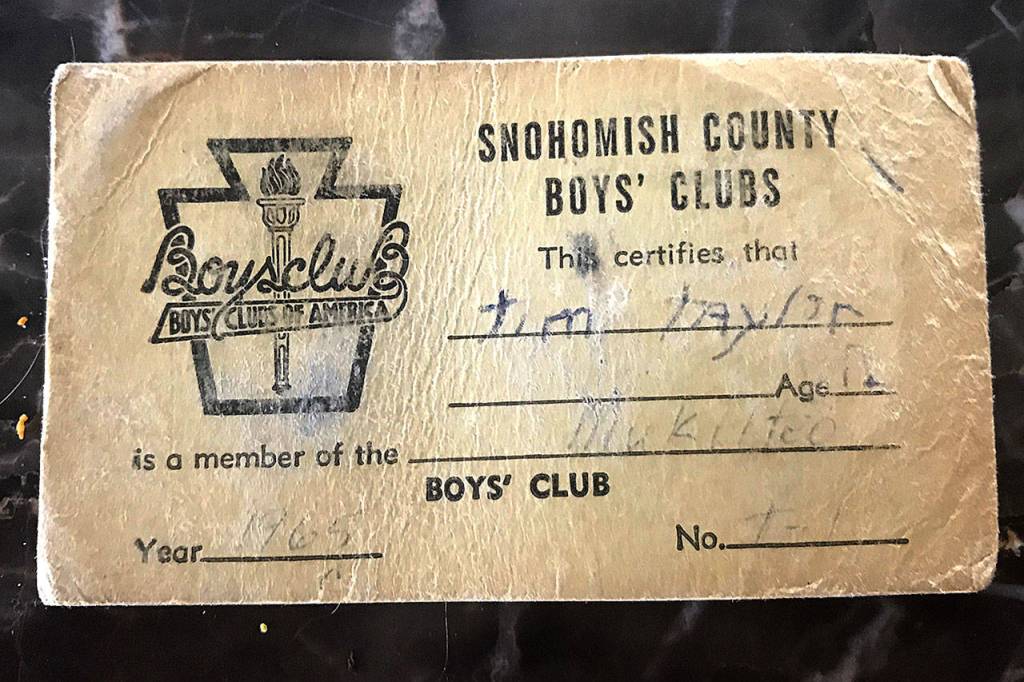 Boysclub
BOYS' CLUBS OF AMERICA
SNOHOMISH COUNTY
BOYS' CLUBS
This certifies that
tim taylor
Age 12
is a member of the Mukilteo
BOYS' CLUB
Year 1965
No. T-1